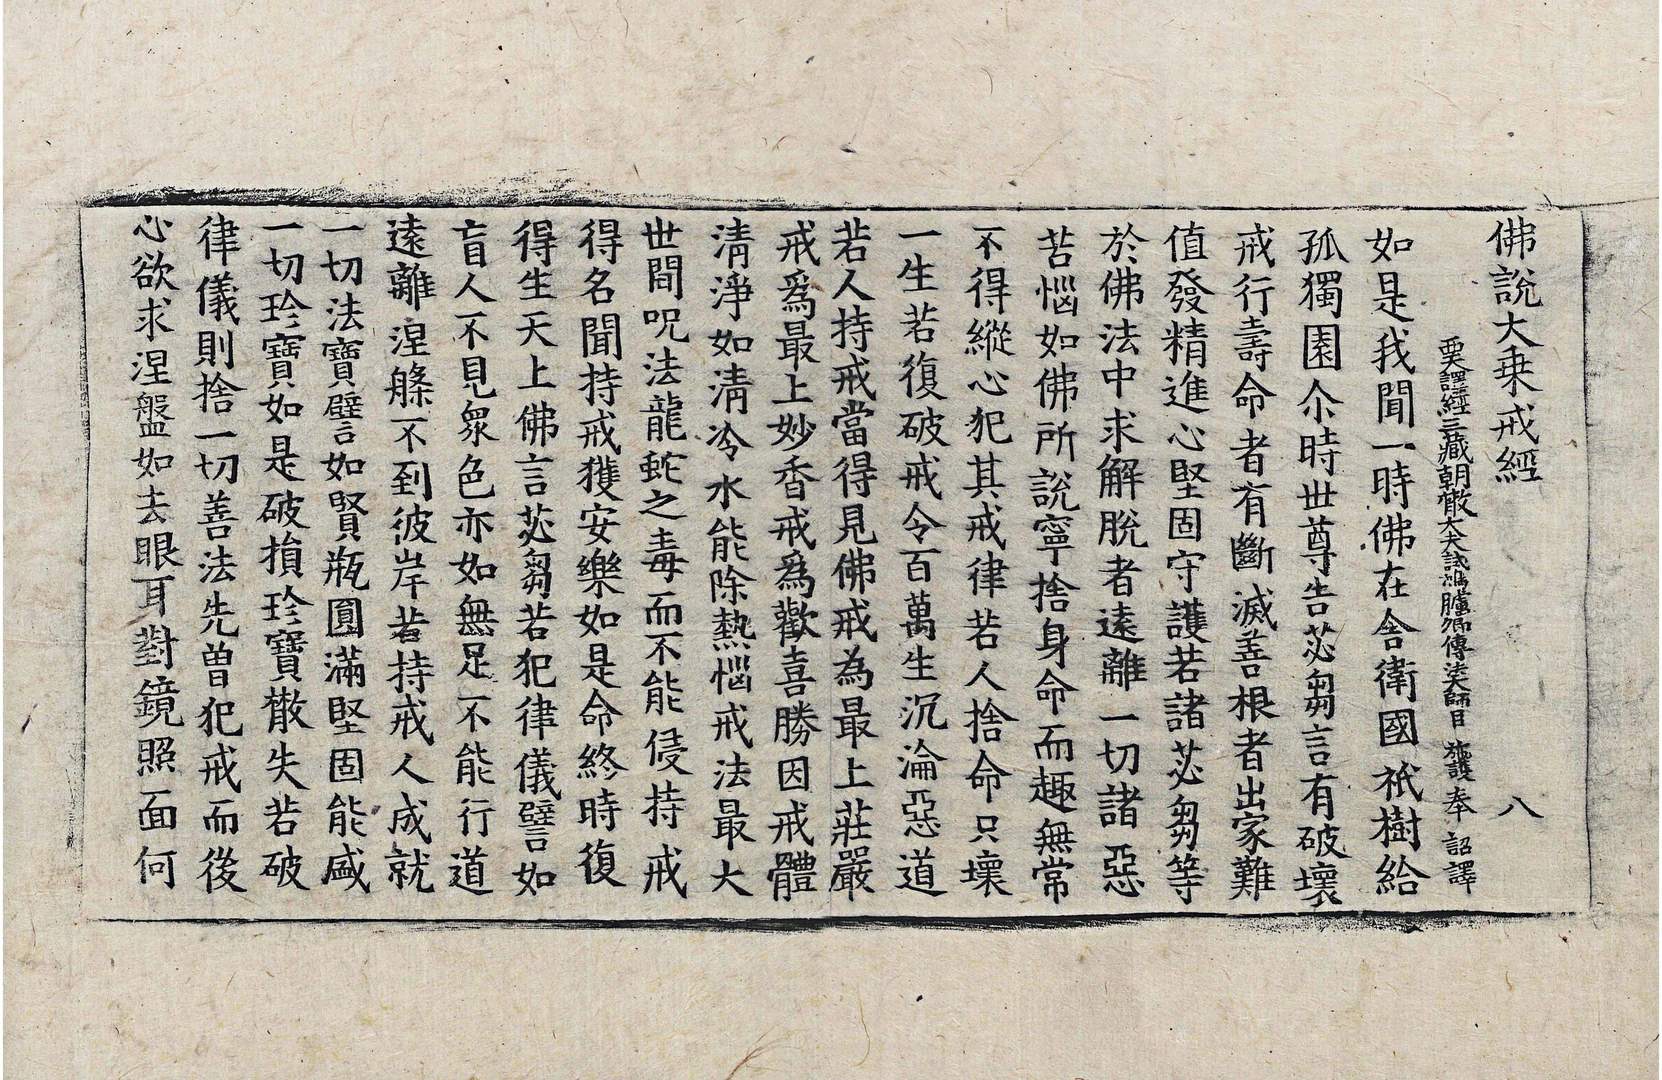 佛說大乗戒經 八
西天譯經三藏朝散大夫試鴻臚卿傳法大師臣 施護奉 詔譯
如是我聞一時佛在舍衛國祇樹給
孤獨園尒時世尊告苾芻言有破壞
戒行壽命者有斷滅善根者出家難
值發精進心堅固守護若諸苾芻等
於佛法中求解脫者遠離一切諸惡
苦惱如佛所說寧捨身命而趣無常
不得縱心犯其戒律若人捨命只壞
一生若復破戒令百萬生沉淪惡道
若人持戒當得見佛戒為最上莊嚴
戒爲最上妙香戒爲歡喜勝因戒體
清淨如清冷水能除熱惱戒法最大
世間呪法龍蛇之毒而不能侵持戒
得名聞持戒獲安樂如是命終時復
得生天上佛言苾芻若犯律儀譬如
盲人不見衆色亦如無足不能行道
遠離涅槃不到彼岸若持戒人成就
一切法寶譬言如賢瓶圓滿堅固能盛
一切珍寶如是破損珍寶散失若破
律儀則捨一切善法先曽犯戒而後
心欲求涅盤如去眼耳對鏡照面何